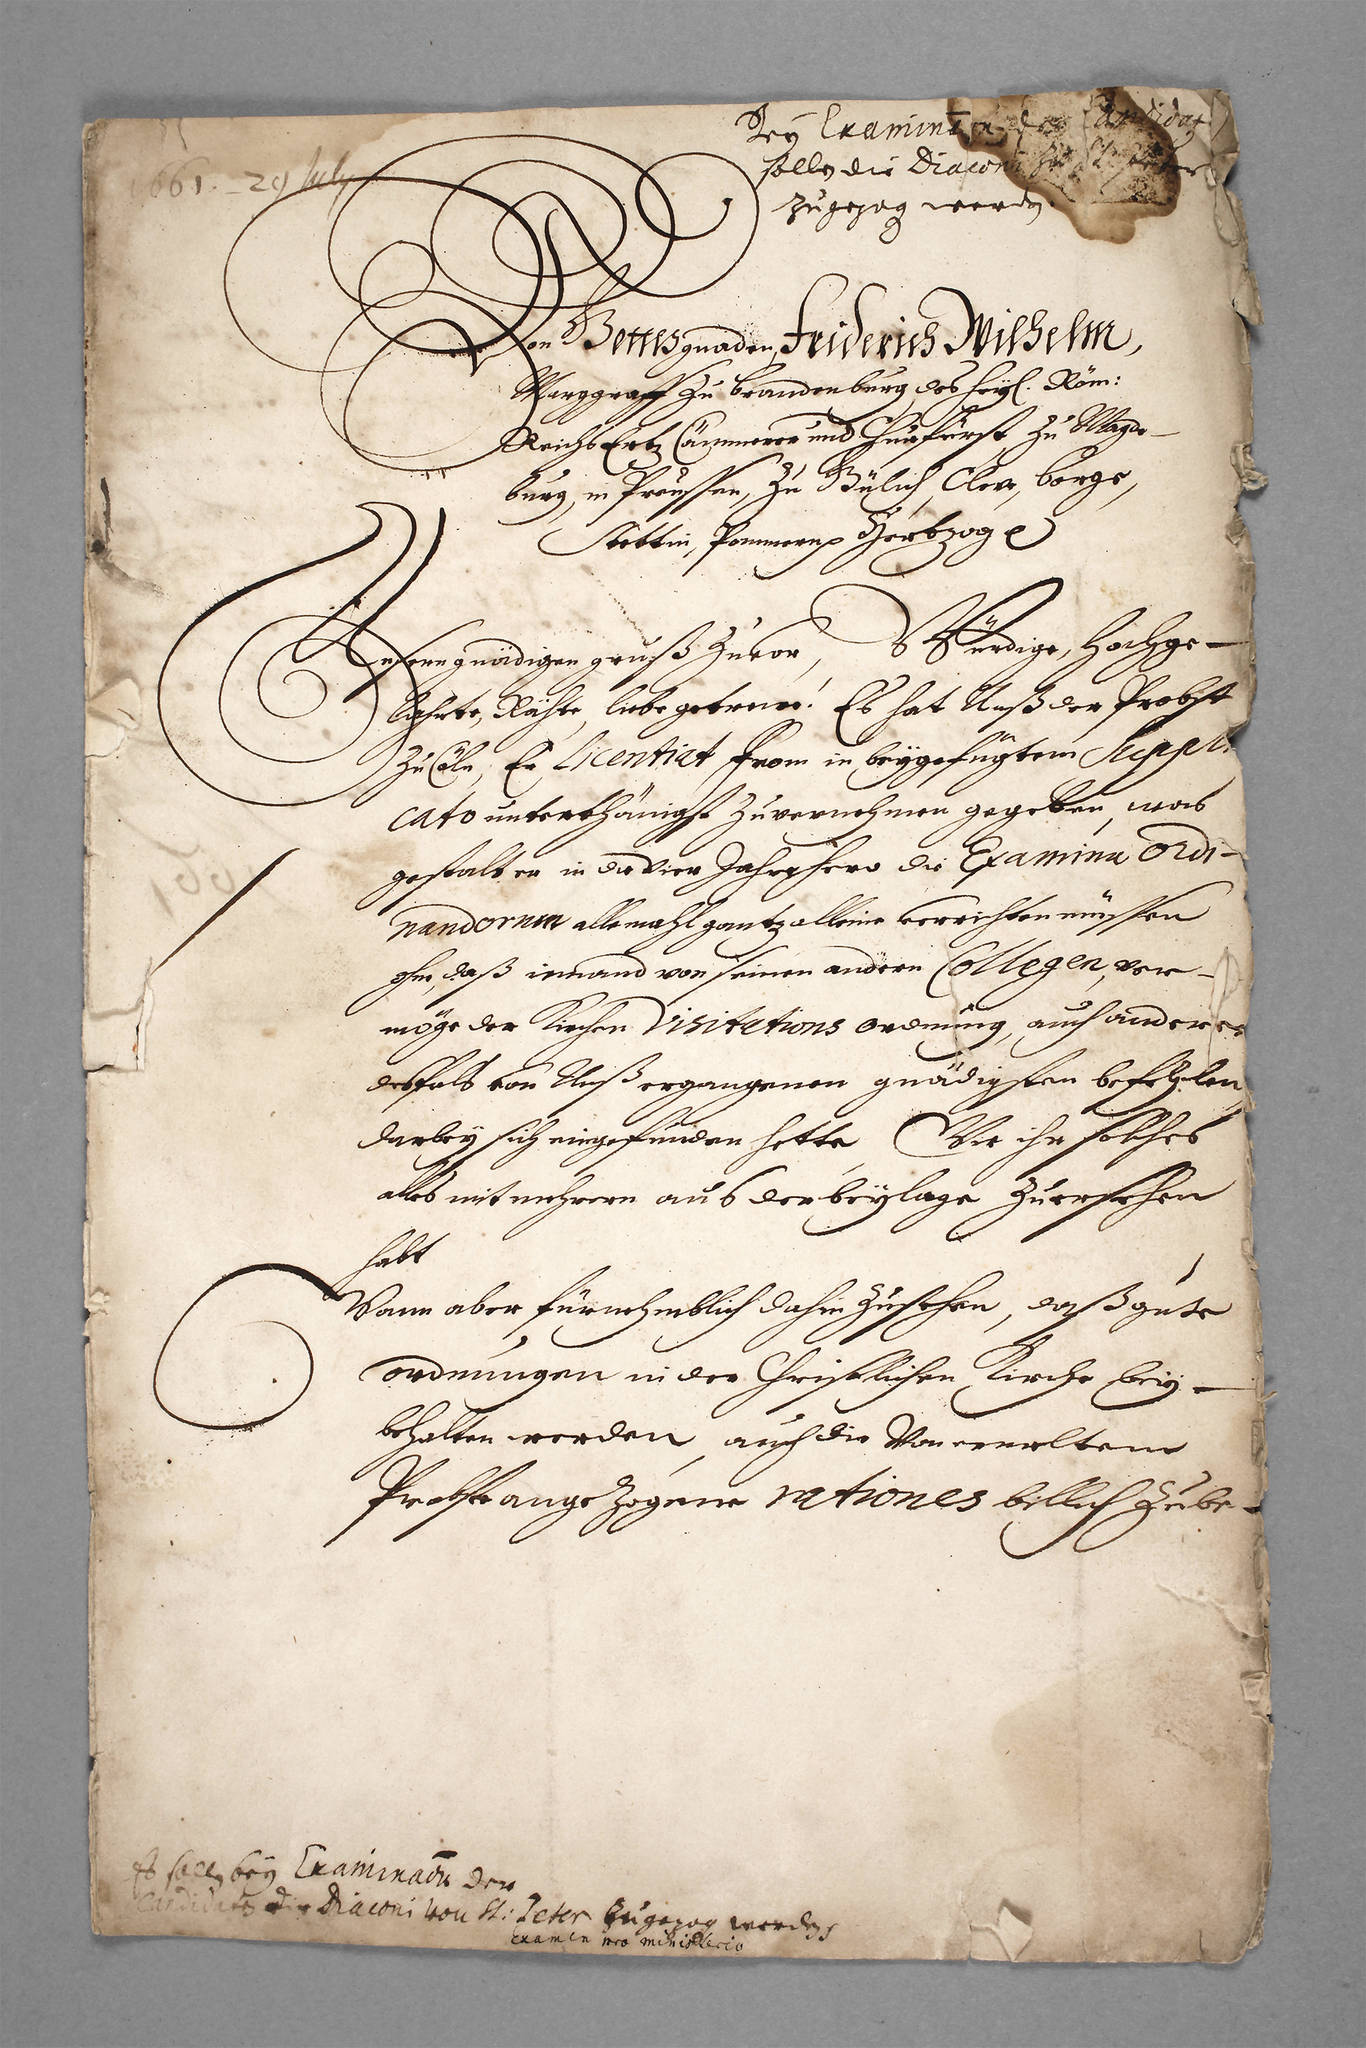 1661. 29 July
Bey Examination der Candidat
solln die Diaconi zu St: Peter
zugezog werdn
Von Gottes gnaden, Friderich Wilhelm,
Marggraff zu Brandenburg, des heyl. Röm:
Reichs Ertz Cämmerer und Churfürst, zu Magde-
burg, in Preussen, zu Gülich, Cleve, Berge,
Stettin, Pommern Hertzog
Unsern gnädigen gruß zuvor, Würdige, Hochge-
lahrte, Rähte, liebe getreue! Es hat Unß der Probst
zu Cöln, Er Licentiat From in beygefügtem Suppli
cato unterthänigst zuvernehmen gegeben, was
gestalt er in die vier Jahr hero die Examina Ordi-
nandorum allemahl gantz alleine verrichten müssen
ohn, daß iemand von seinen andern Collegen, ver-
möge der Kirchen Visitations ordnung, auch anderer
desfals von Unß ergangenen gnädigsten befehlen,
darbey sich eingefunden hette, Wie ihr solches
alles mit mehrern aus der beylage zuersehen
habt
Wann aber fürnehmblich dahin zusehen, daß gute
ordnungen in der Christlichen Kirche bey-
behalten werden, auch die Von ermeltem
Probste angezogene rationes billich zube-
Es solln bey Examination der
Candidaten die Diaconi von St: Peter zugezog werden
Examen pro ministerio